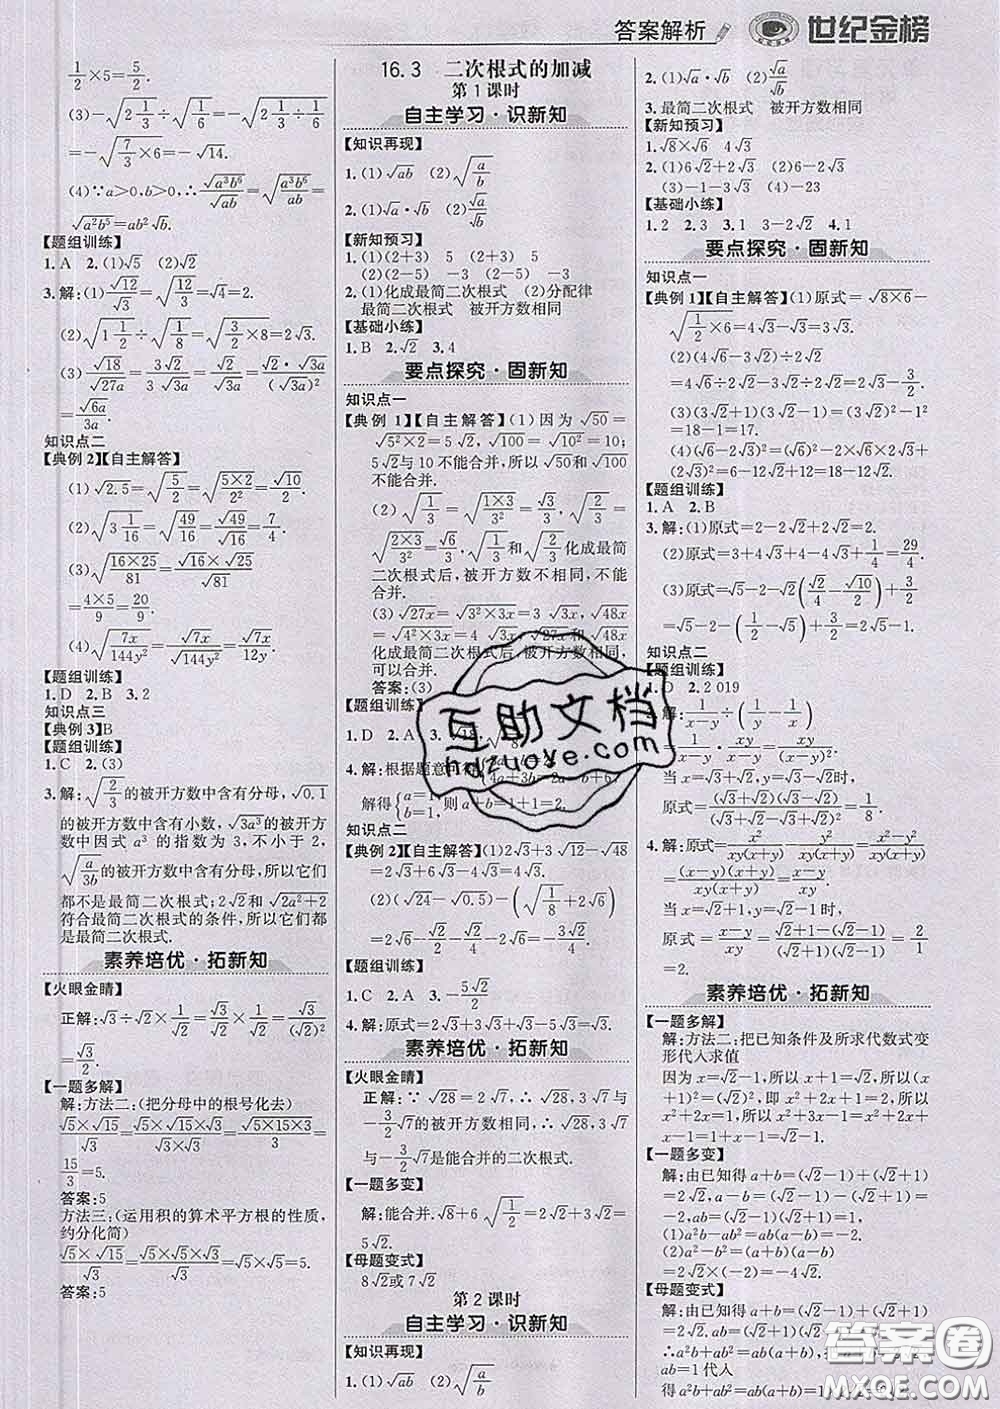 答案解析 世纪金榜
$\frac{1}{2}$×5=$\frac{5}{2}$.
(3)-$\sqrt{2\frac{1}{3}}$÷$\sqrt{\frac{1}{6}}$=-$\sqrt{2\frac{1}{3}÷\frac{1}{6}}$
=-$\sqrt{\frac{7}{3}×6}$=-$\sqrt{14}$.
(4)∵a>0,b>0,∴$\frac{\sqrt{a^3b^6}}{\sqrt{ab}}$=$\sqrt{\frac{a^3b^6}{ab}}$=
$\sqrt{a^2b^5}$=ab²$\sqrt{b}$.
【题组训练】
1.A 2.(1)$\sqrt{5}$ (2)$\sqrt{2}$
3.解:(1)$\frac{\sqrt{12}}{\sqrt{3}}$=$\sqrt{\frac{12}{3}}$=$\sqrt{4}$=2.
(2)$\sqrt{1\frac{1}{2}}$÷$\sqrt{\frac{1}{8}}$=$\sqrt{\frac{3}{2}×8}$=2$\sqrt{3}$.
(3)$\frac{\sqrt{18}}{\sqrt{27a}}$=$\frac{3\sqrt{2}}{3\sqrt{3a}}$=$\frac{\sqrt{2}}{\sqrt{3a}}$=$\frac{\sqrt{2}·\sqrt{3a}}{(\sqrt{3a})^2}$
=$\frac{\sqrt{6a}}{3a}$.
知识点二
【典例2】【自主解答】
(1)$\sqrt{2.5}$=$\sqrt{\frac{5}{2}}$=$\sqrt{\frac{5×2}{2×2}}$=$\frac{\sqrt{10}}{2}$.
(2)$\sqrt{3\frac{1}{16}}$=$\sqrt{\frac{49}{16}}$=$\frac{\sqrt{49}}{\sqrt{16}}$=$\frac{7}{4}$.
(3)$\sqrt{\frac{16×25}{81}}$=$\frac{\sqrt{16}×\sqrt{25}}{\sqrt{81}}$
=$\frac{4×5}{9}$=$\frac{20}{9}$.
(4)$\sqrt{\frac{7x}{144y^2}}$=$\frac{\sqrt{7x}}{\sqrt{144y^2}}$=$\frac{\sqrt{7x}}{12y}$.
【题组训练】
1.D 2.B 3.2
知识点三
【典例3】B
【题组训练】
1.C 2.(3)
3.解:$\sqrt{\frac{2}{3}}$的被开方数中含有分母,$\sqrt{0.1}$
的被开方数中含有小数,$\sqrt{3a^3}$的被开方
数中因式 a³ 的指数为 3,不小于 2,
$\sqrt{\frac{a}{3b}}$的被开方数中含有分母,所以它们
都不是最简二次根式;2$\sqrt{3}$和$\sqrt{2a^2+2}$
符合最简二次根式的条件,所以它们都
是最简二次根式.
素养培优·拓新知
【火眼金睛】
正解:$\sqrt{3}$÷$\sqrt{2}$×$\frac{1}{\sqrt{2}}$=$\sqrt{3}$×$\frac{1}{\sqrt{2}}$×$\frac{1}{\sqrt{2}}$=$\frac{\sqrt{3}}{(\sqrt{2})^2}$=
$\frac{\sqrt{3}}{2}$.
【一题多解】
解:方法二:(把分母中的根号化去)
$\frac{\sqrt{5}×\sqrt{15}}{\sqrt{3}}$=$\frac{\sqrt{5}×\sqrt{15}×\sqrt{3}}{\sqrt{3}×\sqrt{3}}$=$\frac{\sqrt{5×15×3}}{3}$=
$\frac{15}{3}$=5.
答案:5
方法三:(运用积的算术平方根的性质,
约分化简)
$\frac{\sqrt{5}×\sqrt{15}}{\sqrt{3}}$=$\frac{\sqrt{5}×\sqrt{5}×\sqrt{3}}{\sqrt{3}}$=$\sqrt{5}$×$\sqrt{5}$=5.
答案:5
16.3 二次根式的加减
第1课时
自主学习·识新知
【知识再现】
1.(1)$\sqrt{ab}$ (2)$\sqrt{\frac{a}{b}}$
2.(1)$\sqrt{a}$·$\sqrt{b}$ (2)$\frac{\sqrt{a}}{\sqrt{b}}$
【新知预习】
1.(1)(2+3) 5 (2+3) 5
(2)(2-5) -3 (2-5) -3
2.(1)化成最简二次根式 (2)分配律
最简二次根式 被开方数相同
【基础小练】
1.B 2.$\sqrt{2}$ 3.4
要点探究·固新知
知识点一
【典例1】【自主解答】(1)因为$\sqrt{50}$=
$\sqrt{5^2×2}$=5$\sqrt{2}$,$\sqrt{100}$=$\sqrt{10^2}$=10;
5$\sqrt{2}$与10不能合并,所以$\sqrt{50}$和$\sqrt{100}$
不能合并.
(2)$\sqrt{\frac{1}{3}}$=$\sqrt{\frac{1×3}{3^2}}$=$\frac{\sqrt{3}}{3}$,$\sqrt{\frac{2}{3}}$=
$\sqrt{\frac{2×3}{3^2}}$=$\frac{\sqrt{6}}{3}$,$\sqrt{\frac{1}{3}}$和$\sqrt{\frac{2}{3}}$化成最简
二次根式后,被开方数不相同,不能
合并.
(3)$\sqrt{27x}$=$\sqrt{3^2×3x}$=3$\sqrt{3x}$,$\sqrt{48x}$
=$\sqrt{4^2×3x}$=4$\sqrt{3x}$,$\sqrt{27x}$和$\sqrt{48x}$
化成最简二次根式后,被开方数相同,
可以合并.
答案:(3)
【题组训练】
1.D 2.A 3.$\sqrt{18}$,
4.解:根据题意可得
解得{a=1,b=1,则a+b=1+1=2.
知识点二
【典例2】【自主解答】(1)2$\sqrt{3}$+3$\sqrt{12}$-$\sqrt{48}$
=2$\sqrt{3}$+6$\sqrt{3}$-4$\sqrt{3}$=4$\sqrt{3}$.
(2)($\sqrt{24}$-$\sqrt{0.5}$)-($\sqrt{\frac{1}{8}}$+2$\sqrt{6}$)
=2$\sqrt{6}$-$\frac{\sqrt{2}}{2}$-$\frac{\sqrt{2}}{4}$-2$\sqrt{6}$=-$\frac{3\sqrt{2}}{4}$.
【题组训练】
1.C 2.A 3.-$\frac{5\sqrt{2}}{2}$
4.解:原式=2$\sqrt{3}$+3$\sqrt{3}$-5$\sqrt{3}$=$\sqrt{3}$.
素养培优·拓新知
【火眼金睛】
正解:∵$\sqrt{28}$=2$\sqrt{7}$,∴$\sqrt{28}$,3$\sqrt{7}$与
-$\frac{3}{2}\sqrt{7}$的被开方数相同,∴$\sqrt{28}$,3$\sqrt{7}$
与-$\frac{3}{2}\sqrt{7}$是能合并的二次根式.
【一题多变】
解:能合并.$\sqrt{8}$+6$\sqrt{\frac{1}{2}}$=2$\sqrt{2}$+3$\sqrt{2}$=
5$\sqrt{2}$.
【母题变式】
8$\sqrt{2}$或7$\sqrt{2}$
第2课时
自主学习·识新知
【知识再现】
1.(1)$\sqrt{ab}$ (2)$\sqrt{\frac{a}{b}}$
2.(1)$\sqrt{a}$·$\sqrt{b}$ (2)$\frac{\sqrt{a}}{\sqrt{b}}$
3.最简二次根式 被开方数相同
【新知预习】
1.$\sqrt{8}$×$\sqrt{6}$ 4$\sqrt{3}$
2.(1)6$\sqrt{2}$+2$\sqrt{3}$ (2)4$\sqrt{3}$
(3)-1-3$\sqrt{3}$ (4)-23
【基础小练】
1.2 2.3 3.1 3-2$\sqrt{2}$ 4.1
要点探究·固新知
知识点一
【典例1】【自主解答】(1)原式=$\sqrt{8×6}$-
$\sqrt{\frac{1}{2}×6}$=4$\sqrt{3}$-$\sqrt{3}$=3$\sqrt{3}$.
(2)(4$\sqrt{6}$-3$\sqrt{2}$)÷2$\sqrt{2}$
=4$\sqrt{6}$÷2$\sqrt{2}$-3$\sqrt{2}$÷2$\sqrt{2}$=2$\sqrt{3}$-$\frac{3}{2}$.
(3)(3$\sqrt{2}$+1)(3$\sqrt{2}$-1)=(3$\sqrt{2}$)²-1²
=18-1=17.
(4)($\sqrt{6}$-2$\sqrt{3}$)²=($\sqrt{6}$)²-2×$\sqrt{6}$×2$\sqrt{3}$+
(2$\sqrt{3}$)²=6-12$\sqrt{2}$+12=18-12$\sqrt{2}$.
【题组训练】
1.A 2.B
3.解:(1)原式=2-2$\sqrt{2}$+2$\sqrt{2}$=2.
(2)原式=3+4$\sqrt{3}$+4-4$\sqrt{3}$+$\frac{1}{4}$=$\frac{29}{4}$.
(3)原式=$\sqrt{5}$-2-$\sqrt{2}$×($\frac{\sqrt{2}}{4}$-$\frac{\sqrt{10}}{2}$)+$\frac{3}{2}$
=$\sqrt{5}$-2-($\frac{1}{2}$-$\sqrt{5}$)+$\frac{3}{2}$=2$\sqrt{5}$-1.
知识点二
【题组训练】
1.D 2.2 019
解:$\frac{1}{x-y}$÷($\frac{1}{y}$-$\frac{1}{x}$)
=$\frac{1}{x-y}$·$\frac{xy}{x-y}$=$\frac{xy}{(x-y)^2}$.
当x=$\sqrt{3}$+$\sqrt{2}$,y=$\sqrt{3}$-$\sqrt{2}$时,
原式=$\frac{(\sqrt{3}+\sqrt{2})(\sqrt{3}-\sqrt{2})}{(2\sqrt{2})^2}$=$\frac{1}{8}$.
4.解:原式=$\frac{x^2}{xy(x+y)}$-$\frac{y^2}{xy(x+y)}$=$\frac{x^2-y^2}{xy(x+y)}$
=$\frac{(x-y)(x+y)}{xy(x+y)}$=$\frac{x-y}{xy}$.
当x=$\sqrt{2}$+1,y=$\sqrt{2}$-1时,
原式=$\frac{x-y}{xy}$=$\frac{\sqrt{2}+1-(\sqrt{2}-1)}{(\sqrt{2}+1)(\sqrt{2}-1)}$=$\frac{2}{1}$
=2.
素养培优·拓新知
【一题多解】
解:方法二:把已知条件及所求代数式变
形代入求值
因为x=$\sqrt{2}$-1,所以x+1=$\sqrt{2}$,所以(x
+1)²=($\sqrt{2}$)²,即x²+2x+1=2,所以
x²+2x=1,所以x²+3x-1=x²+2x+
x-1=1+x-1=x=$\sqrt{2}$-1.
【一题多变】
解:由已知得a+b=($\sqrt{2}$-1)+($\sqrt{2}$+1)
=2$\sqrt{2}$,ab=($\sqrt{2}$-1)($\sqrt{2}$+1)=1,
(1)a²b-ab=ab(a-1)=$\sqrt{2}$-2.
(2)a²+ab+b²=a²+2ab+b²-ab
【母题变式】
解:由已知得a+b=
∴a²b²+ab²
ab=1代入
得a²b²+ab²+ab=
互助文档
hdzuoye.com
答案圈
MXQE.COM